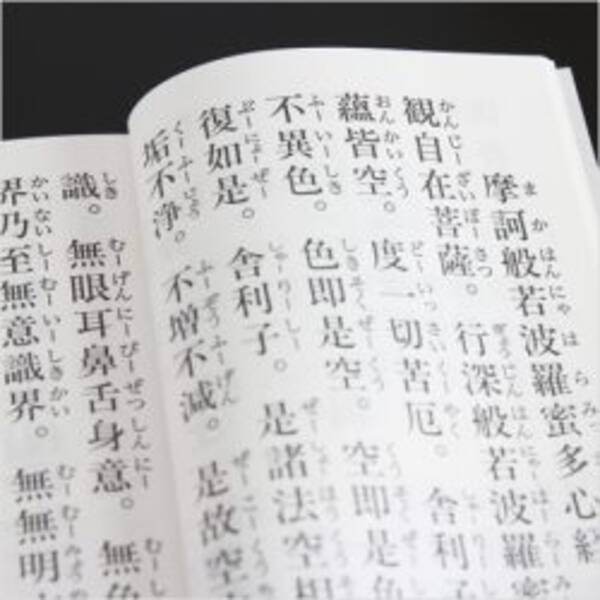 摩訶般若波羅蜜多心経
観自在菩薩。行深般若波羅蜜
蘊皆空。度一切苦厄。舎利子
不異色。色即是空。空即是色
復如是。舎利子。是諸法空相
垢不浄。不増不減。是故空
識。無眼耳鼻舌身意。無色
界乃至無意識界。無無明